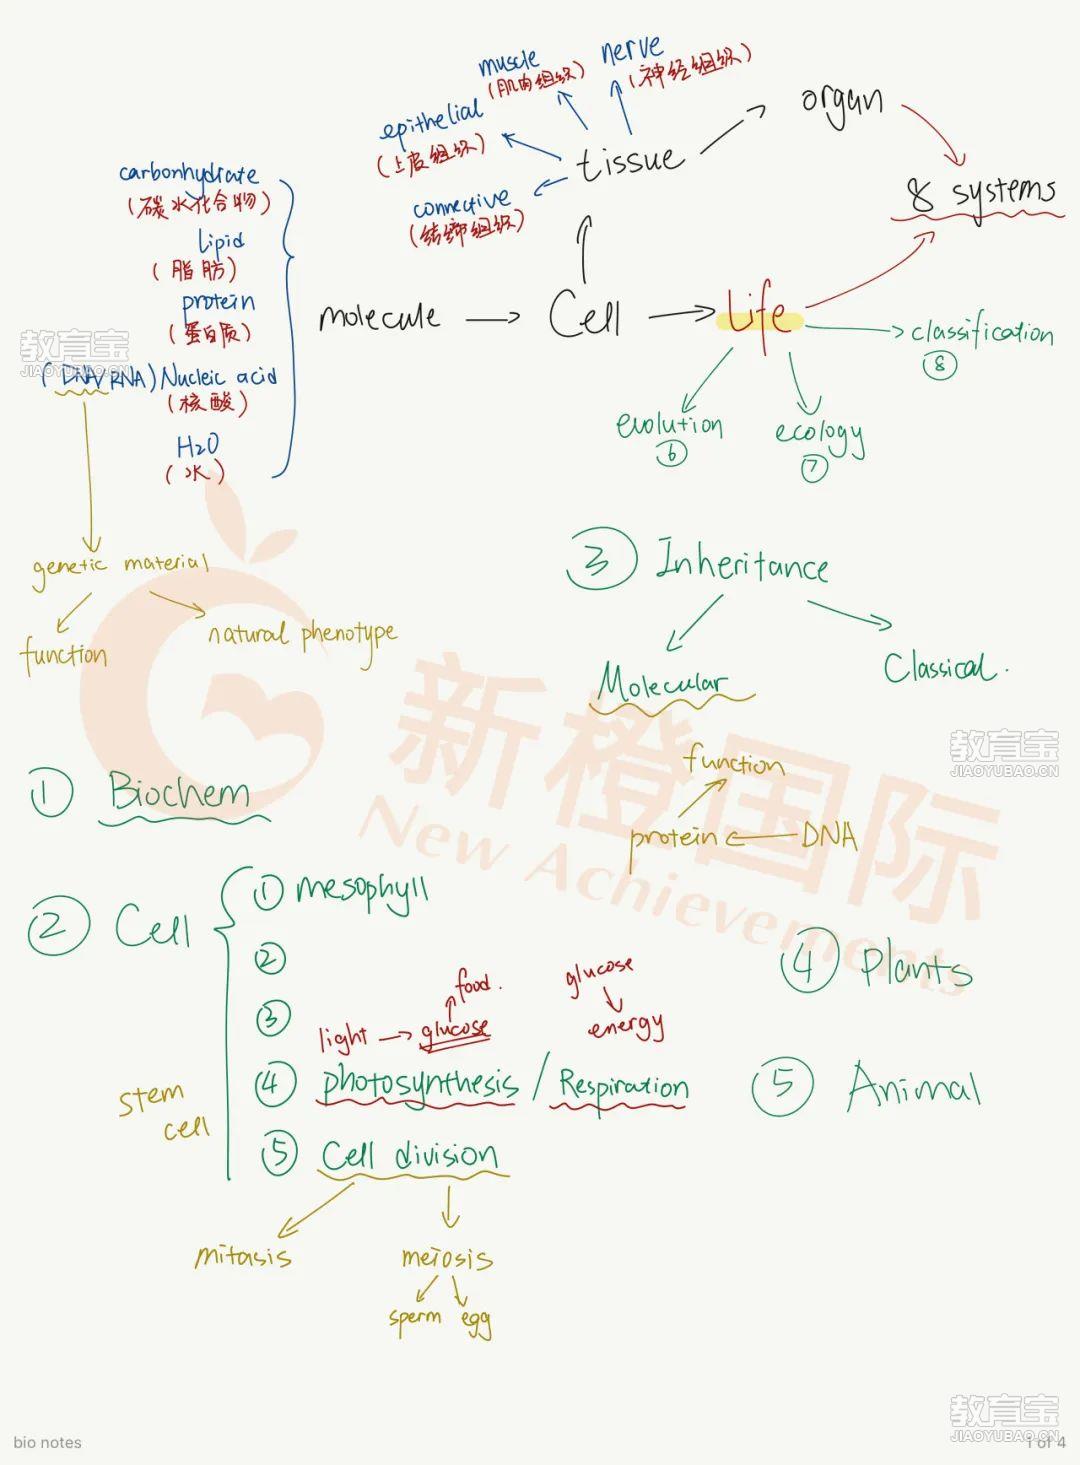 muscle
(肌肉组织)
nerve
(神经组织)
epithelial
(上皮组织)
tissue
organ
connective
(结缔组织)
8 systems
carbonhydrate
(碳水化合物)
lipid
(脂肪)
protein
(蛋白质)
(DNA/RNA) Nucleic acid
(核酸)
H₂O
(水)
molecule
Cell
Life
classification
⑧
evolution
⑥
ecology
⑦
genetic material
function
natural phenotype
③ Inheritance
Molecular
Classical.
function
protein
DNA
① Biochem
② Cell
① mesophyll
②
③
light
glucose
food.
glucose
energy
④ photosynthesis / Respiration
stem
cell
⑤ Cell division
mitasis
meiosis
sperm
egg
④ Plants
⑤ Animal
新橙国际
New Achievements
教育宝
JIAOYUBAO.CN
教育宝
JIAOYUBAO.CN
教育宝
JIAOYUBAO.CN
bio notes
1 of 4